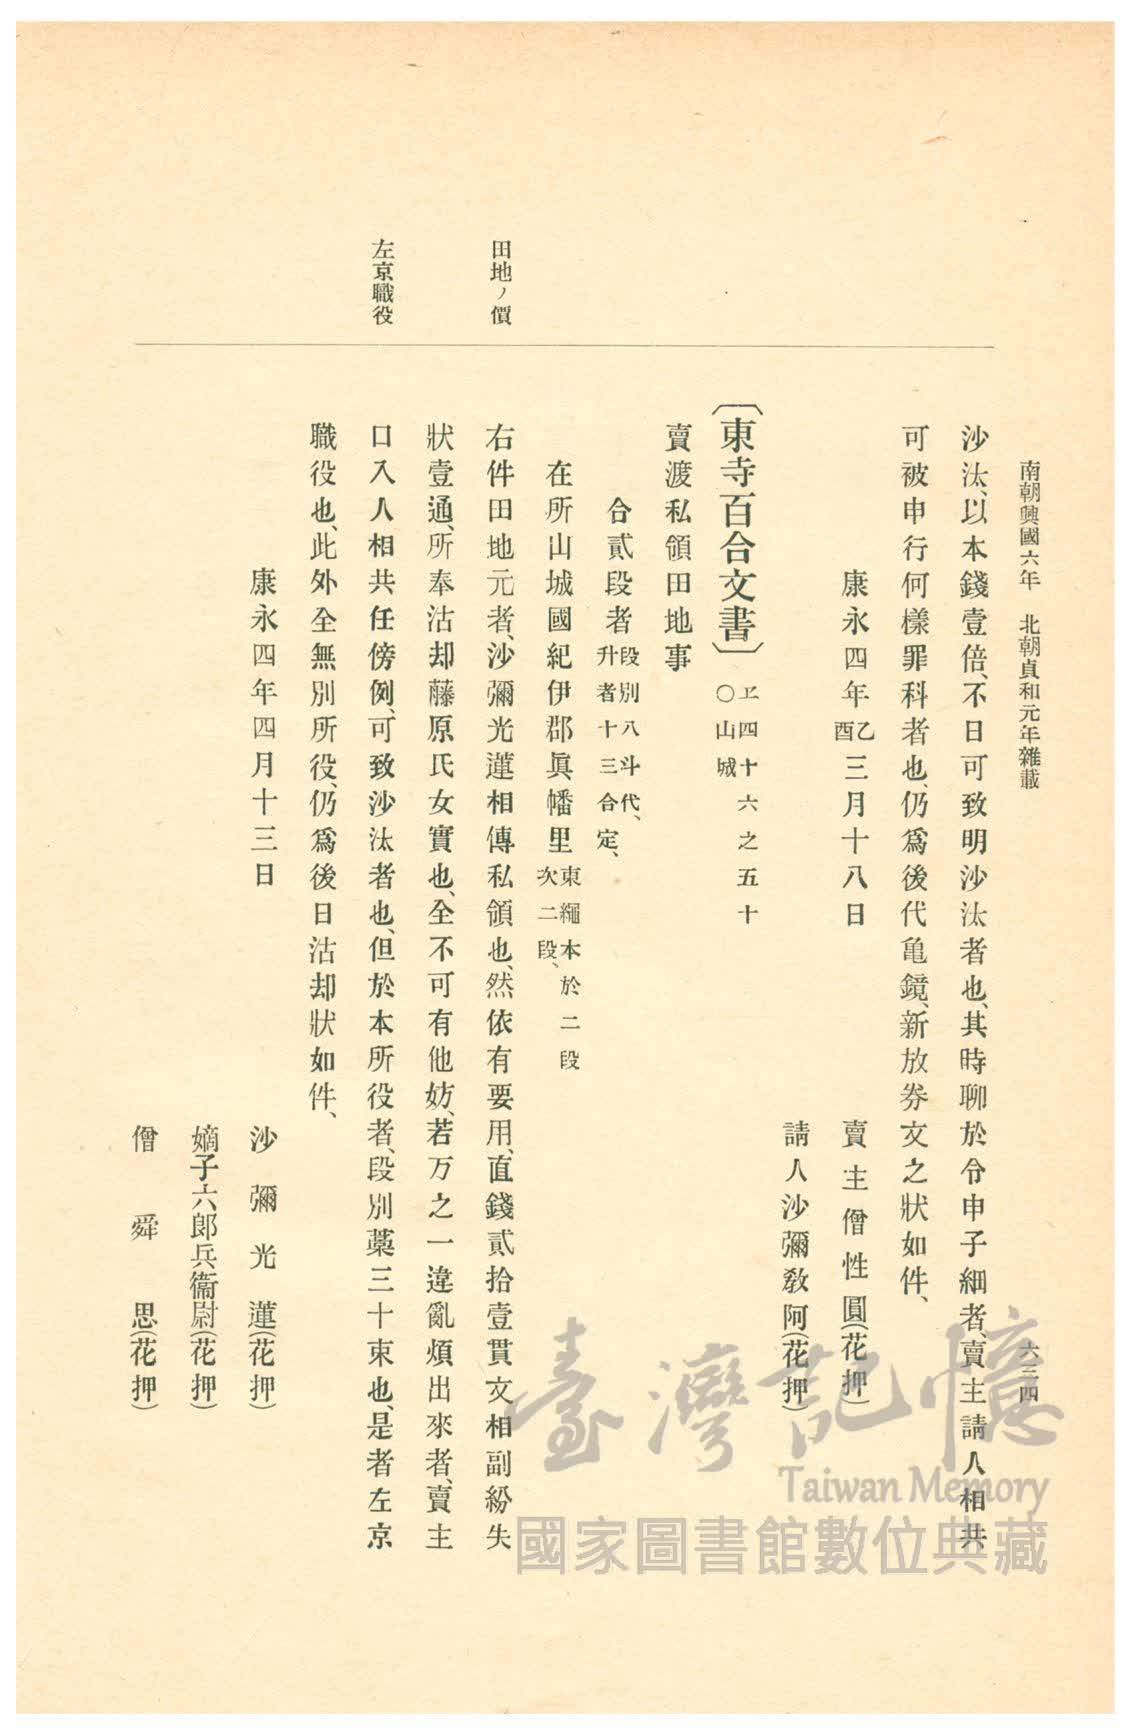 南朝興國六年　北朝貞和元年雜載　六三四
沙汰、以本錢壹倍、不日可致明沙汰者也、其時聊於令申子細者、賣主請人相共
可被申行何樣罪科者也、仍爲後代亀鏡、新放券文之狀如件、
康永四年乙酉三月十八日　賣主僧性圓(花押)
請人沙彌敎阿(花押)
〔東寺百合文書〕ヱ四十六之五十
○山城
賣渡私領田地事
合貳段者段別八斗代、
升者十三合定、
在所山城國紀伊郡眞幡里東繩本於二段
次二段、
田地ノ價
右件田地元者、沙彌光蓮相傳私領也、然依有要用、直錢貳拾壹貫文相副紛失
狀壹通、所奉沽却藤原氏女實也、全不可有他妨、若万之一違亂煩出來者、賣主
左京職役
口入人相共任傍例、可致沙汰者也、但於本所役者、段別藁三十束也、是者左京
職役也、此外全無別所役、仍爲後日沽却狀如件、
康永四年四月十三日
沙彌光蓮(花押)
嫡子六郞兵衞尉(花押)
僧舜思(花押)
臺灣記憶
Taiwan Memory
國家圖書館數位典藏